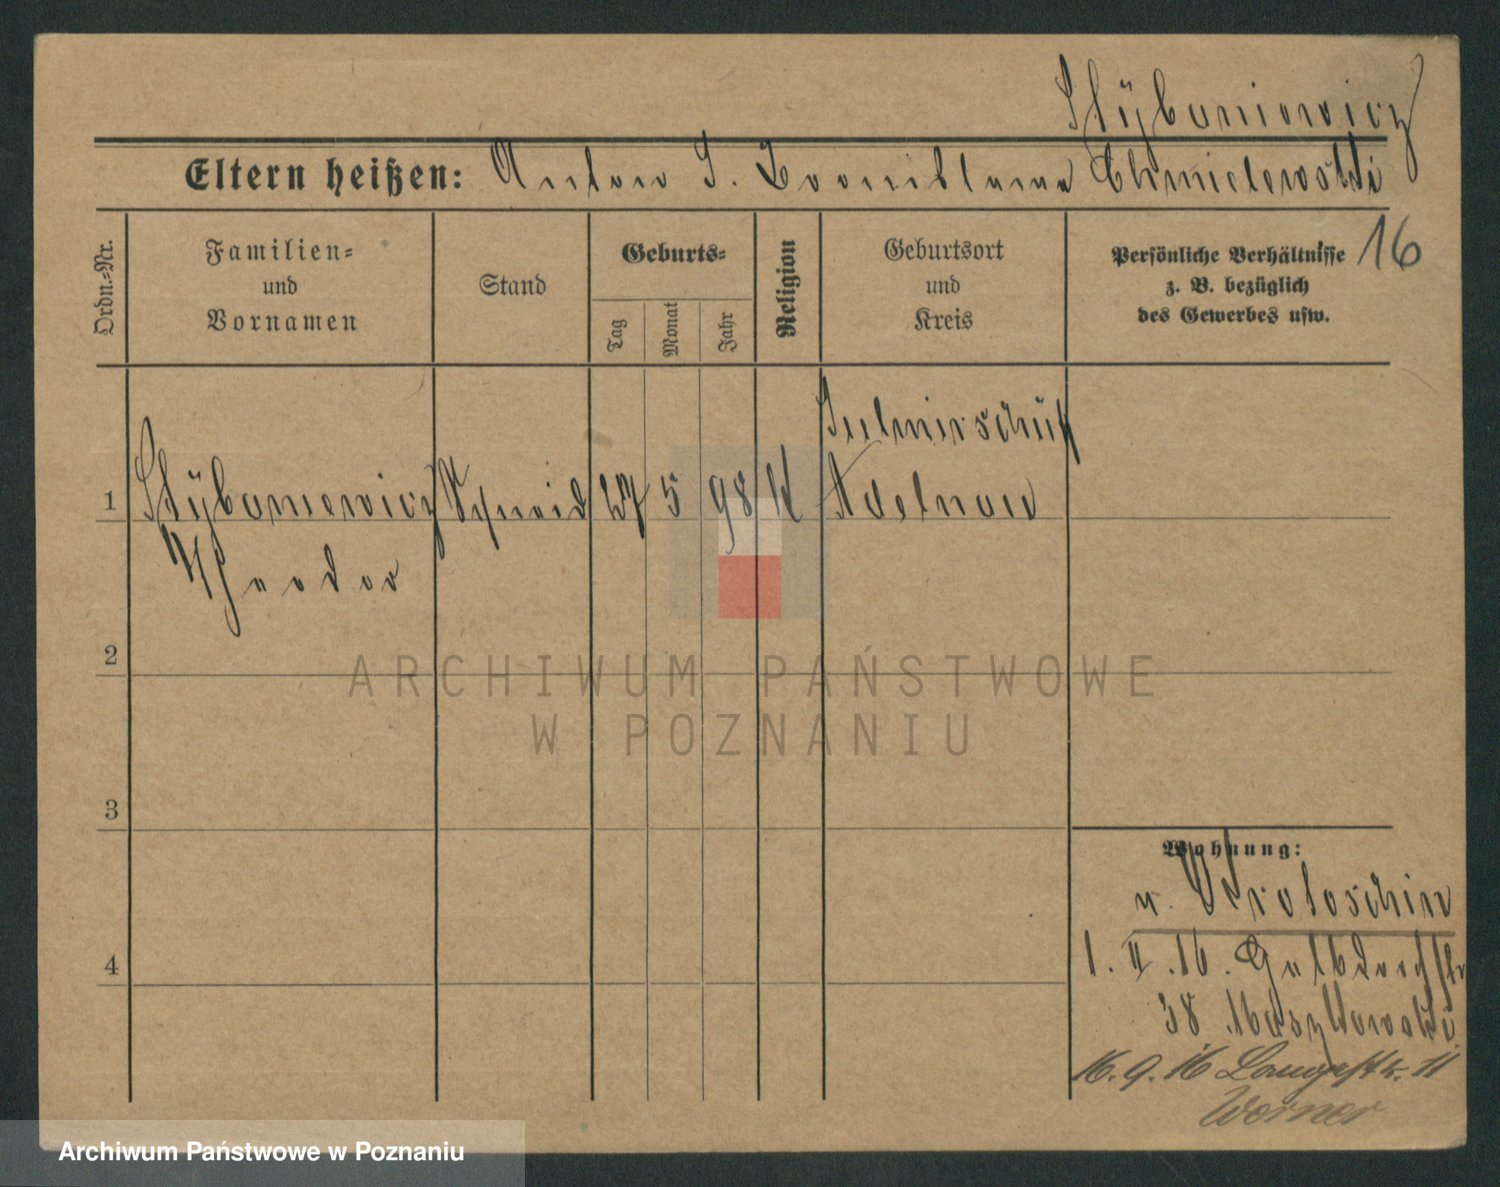 Stybaniewicz
Eltern heißen: Anton S. Bronislawa Chmielewski
Ordn.-Nr.
Familien-
und
Vornamen
Stand
Geburts-
Tag
Monat
Jahr
Religion
Geburtsort
und
Kreis
Persönliche Verhältnisse
z. B. bezüglich
des Gewerbes usw.
16
Sulmirschütz
1 Stybaniewicz Schneid 27 5 98 K Adelnau
Theodor
2
3
4
Wohnung:
n. Krotoschin
1. II. 16.
38
16. 9. 16 Langestr. 11
Werner
ARCHIWUM PAŃSTWOWE
W POZNANIU
Archiwum Państwowe w Poznaniu